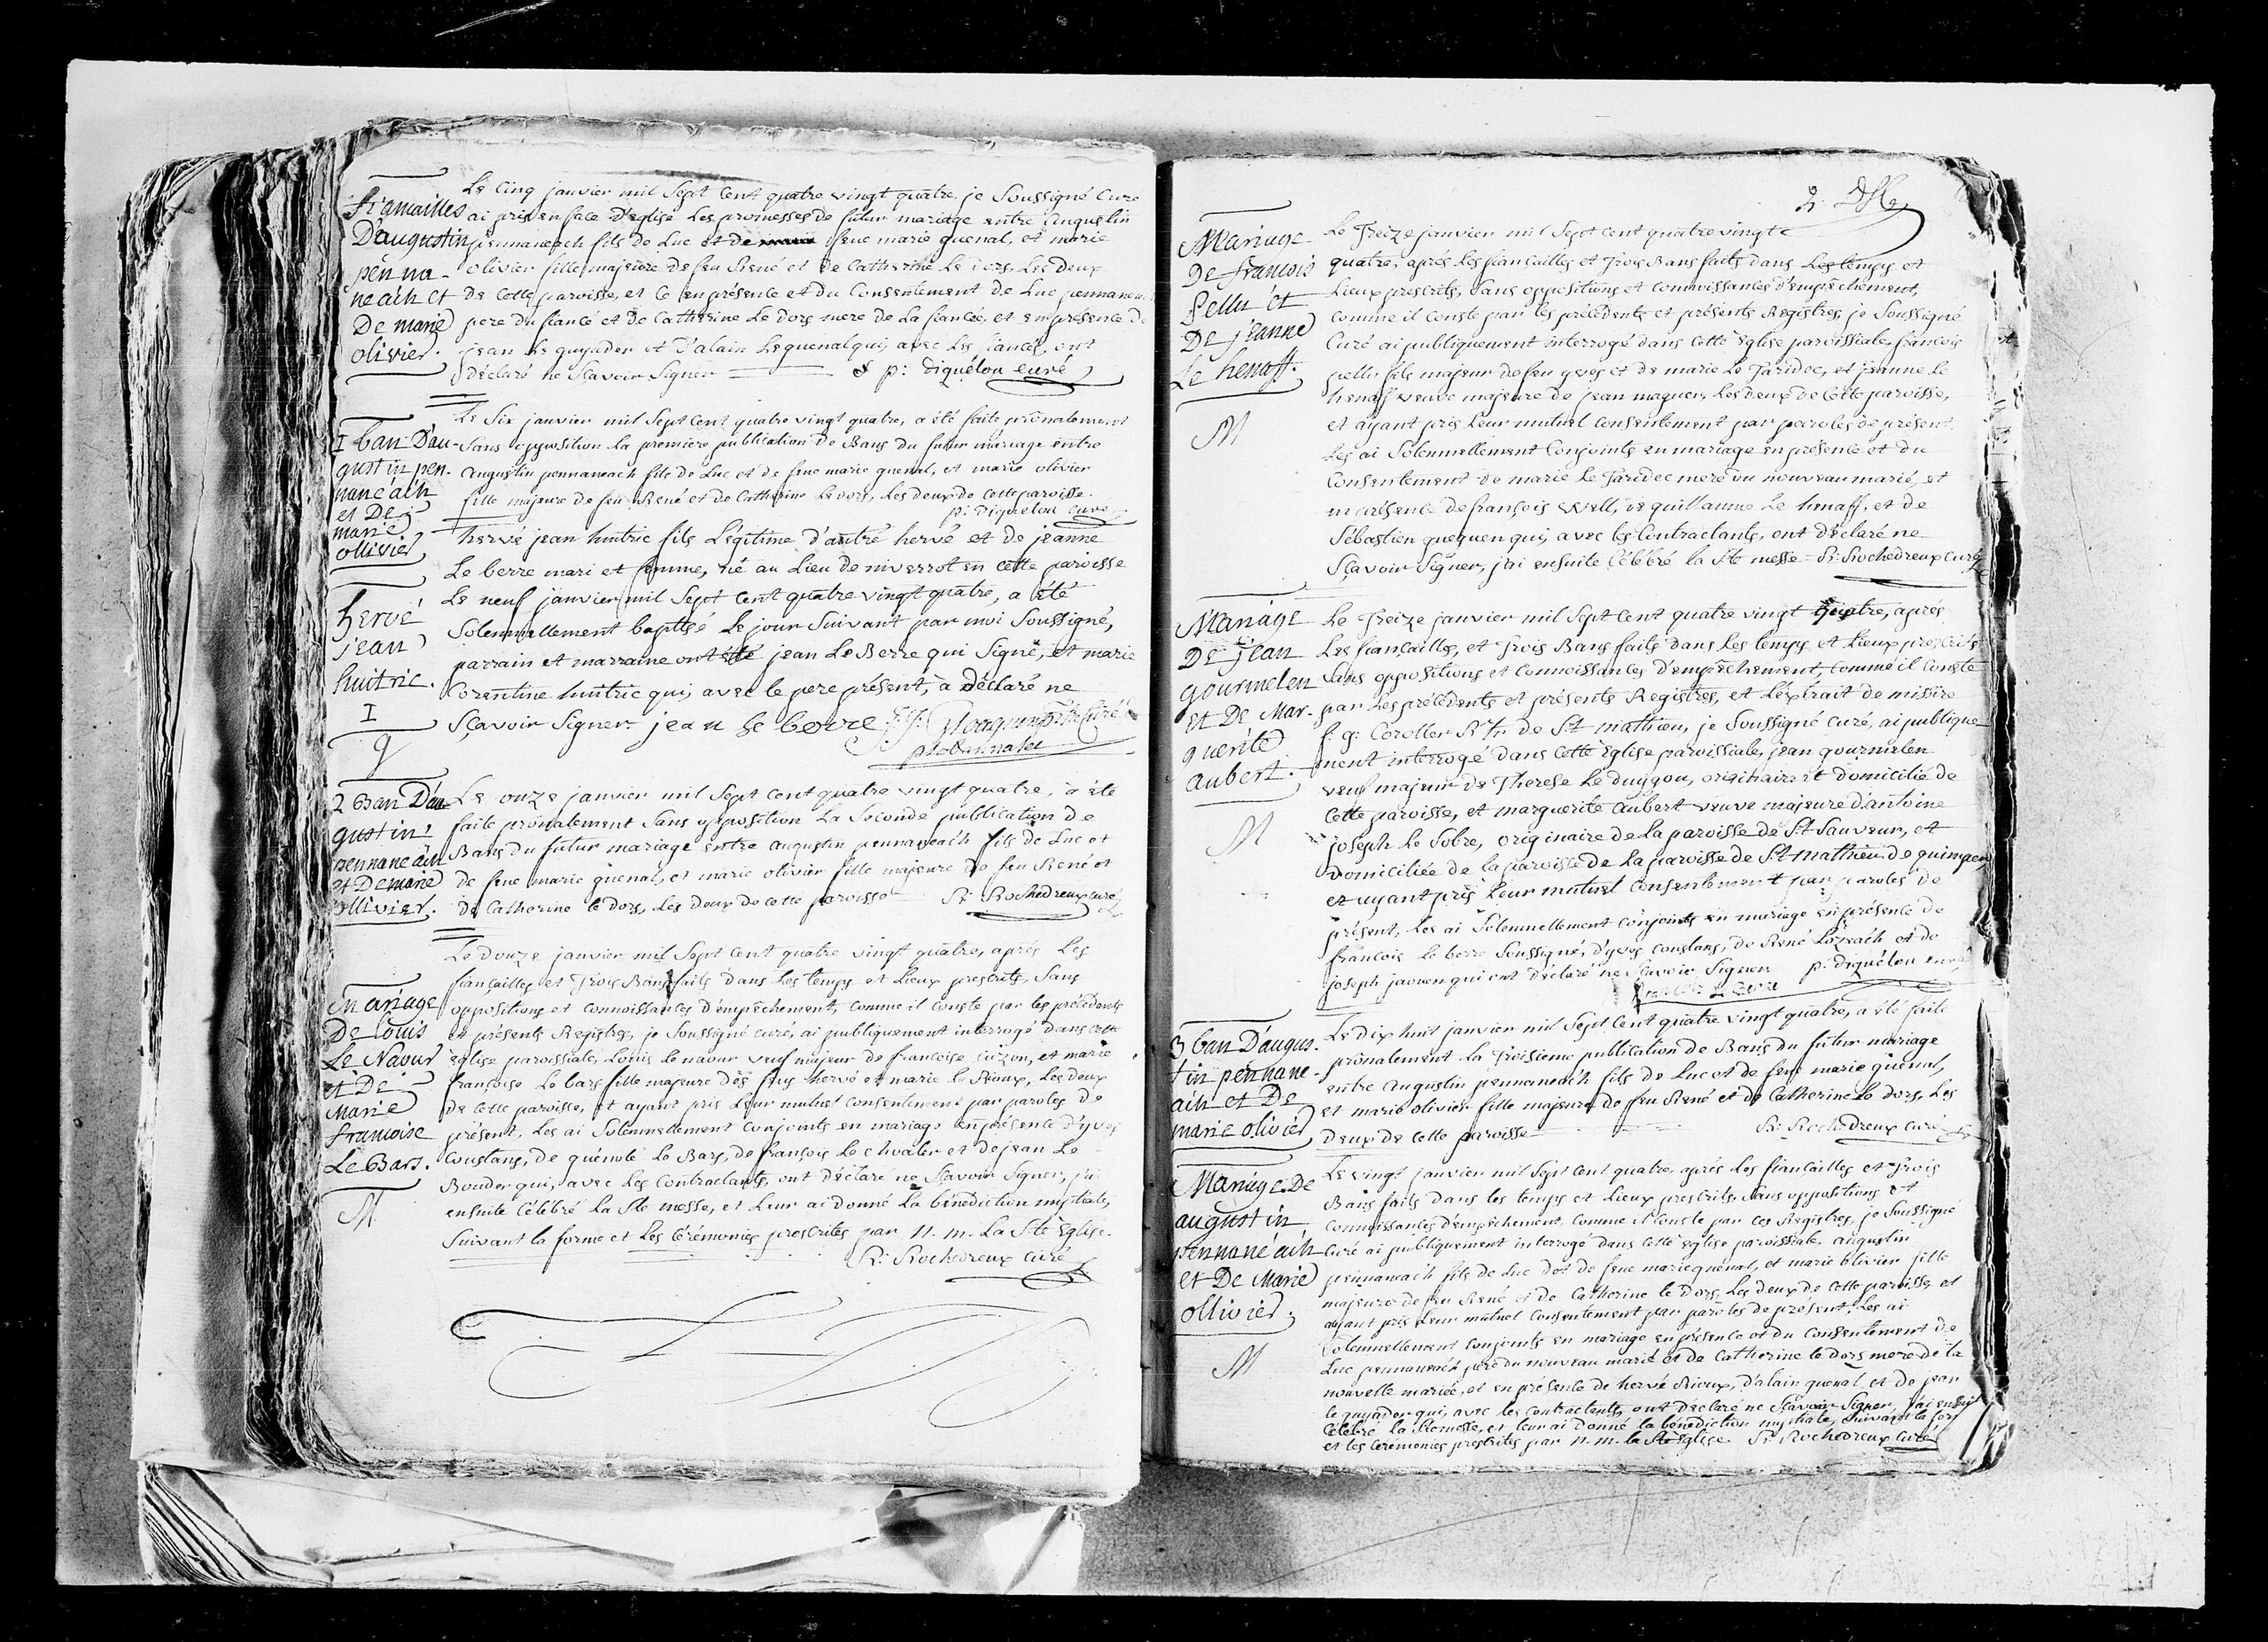 fiancailles
D'augustin
penna-
neac'h et
De marie
olivier.
Le Cinq janvier mil Sept Cent quatre vingt quatre, je Soussigné Curé
ai pris en face d'eglise Les promesses de futur mariage entre augustin
pennaneach fils de Luc et de feue marie quenal, et marie
olivier fille majeure de feu René et de Catherine Le dors, Les deux
de Cette paroisse, et Ce en présence et du Consentement de Luc pennaneach
pere du fiancé et de Catherine Le dors mere de La fiancée, et en présence de
jean Le guyader et d'alain Le quenal qui, avec Les fiancés, ont
déclaré ne Sçavoir Signer p: diquélou curé
1 ban D'au-
gustin pen-
nane'ac'h
et De
marie
ollivier
Le Six janvier mil Sept Cent quatre vingt quatre, a été faite prônalement
Sans opposition la premiere publication de Bans du futur mariage entre
augustin pennaneach fils de Luc et de feue marie quenal, et marie olivier
fille majeure de feu René et de Catherine Le dors, Les deux de cette paroisse.
p: diquelou curé
hervé
jean
huitric.
1
hervé jean huitric fils Légitime d'autre hervé et de jeanne
Le berre mari et femme, né au Lieu de niverrot en cette paroisse
Le neuf janvier mil Sept Cent quatre vingt quatre, a été
Solemnellement baptisé Le jour Suivant par moi Soussigné,
parrain et marraine ont été jean Le Berre qui Signe, et marie
Corentine huitric qui, avec le pere présent, a déclaré ne
Sçavoir Signer jean le berre
2 Ban D'au-
gustin
pennaneach
et De marie
ollivier.
Le onze janvier mil Sept Cent quatre vingt quatre, a été
faite prônalement Sans opposition La Seconde publication de
Bans du futur mariage entre augustin pennaneach fils de Luc et
de feue marie quenal, et marie olivier fille majeure de feu René et
de Catherine le dors, Les deux de cette paroisse R: Rochedreux curé
Mariage
De Louis
Le Naour
et De
Marie
francoise
Le Bars.
M
Le douze janvier mil Sept Cent quatre vingt quatre, après Les
fiançailles et Trois Bans faits dans Les temps et Lieux prescrits, Sans
oppositions et connoissances d'empêchement, comme il conste par les précédents
et présents Registres, je Soussigné curé, ai publiquement interrogé dans cette
Eglise paroissiale, Louis Le naour veuf majeur de francoise cuzon, et marie
françoise Le bars fille majeure des feus hervé et marie le Rioux, Les deux
de cette paroisse, et ayant pris Leur mutuel consentement par paroles de
présent, Les ai Solemnellement conjoints en mariage en présence d'yves
Constans, de quénolé Le Bars, de françois Le choaler et de jean Le
Bouder qui, avec Les Contractants, ont déclaré ne Sçavoir Signer, j'ai
ensuite célébré La Ste messe, et Leur ai donné La bénédiction nuptiale,
Suivant la forme et Les Cérémonies prescrites par N. m. La Ste Eglise.
R: Rochedreux curé
2.
Mariage
De francois
Pellu et
De jeanne
Le henaff.
M
Le Treize janvier mil Sept Cent quatre vingt
quatre, après Les fiançailles et Trois Bans faits dans Les temps et
Lieux prescrits, Sans oppositions et connoissances d'empêchement,
comme il conste par les précédents et présents Registres, je Soussigné
Curé ai publiquement interrogé dans cette Eglise paroissiale, françois
pellu fils majeur de feu yves et de marie Le Taridec, et jeanne Le
henaff veuve majeure de jean maguer, Les deux de Cette paroisse,
et ayant pris Leur mutuel Consentement par paroles de présent,
Les ai Solemnellement Conjoints en mariage en présence et du
Consentement de marie Le Taridec mere du nouveau marié, et
en présence de françois Well, de guillaume Le henaff, et de
Sébastien gueguen qui, avec les Contractants, ont déclaré ne
Sçavoir Signer, j'ai ensuite Célébré la Ste messe R: Rochedreux curé
Mariage
De jean
gourmelen
et De Mar-
guerite
aubert.
M
Le Treize janvier mil Sept Cent quatre vingt quatre, après
Les fiançailles, et Trois Bans faits dans Les temps et Lieux prescrits
Sans oppositions et connoissances d'empêchement, comme il conste
par Les précédents et présents Registres, et L'extrait de missire
f. g. Coroller Rtr. de St mathieu, je Soussigné curé, ai publique
ment interrogé dans Cette Eglise paroissiale, jean gourmelen
veuf majeur de Therese Le duygou, originaire et domicilié de
cette paroisse, et marguerite aubert veuve majeure d'antoine
joseph Le Sobre, originaire de la paroisse de St Sauveur, et
domiciliée de la paroisse de la paroisse de St mathieu de quimper,
et ayant pris Leur mutuel consentement par paroles de
présent, Les ai Solemnellement conjoints en mariage en présence de
francois le berre Soussigné, d'yves constans, de René Lozeach et de
joseph jaouen qui ont déclaré ne Sçavoir Signer p: diquélou curé
francois le berre
3 ban D'augus-
tin pennane-
ach et De
marie olivier
Le Dix huit janvier mil Sept Cent quatre vingt quatre, a été faite
prônalement La Troisieme publication de Bans du futur mariage
entre augustin pennaneach fils de Luc et de feue marie quénal,
et marie olivier fille majeure de feu René et de Catherine le dors, Les
deux de cette paroisse R: Rochedreux curé
Mariage De
augustin
pennané'ach
et De Marie
ollivier.
M
Le vingt janvier mil Sept Cent quatre, après Les fiançailles et Trois
Bans faits dans les temps et Lieux prescrits, Sans oppositions et
connoissances d'empêchement, comme il conste par ces Registres, je Soussigné
curé ai publiquement interrogé dans cette Eglise paroissiale, augustin
pennaneach fils de Luc et de feue marie quénal, et marie olivier fille
majeure de feu René et de Catherine le dors, Les deux de cette paroisse, et
ayant pris Leur mutuel consentement par paroles de présent, Les ai
Solemnellement conjoints en mariage en présence et du Consentement de
Luc pennaneach pere du nouveau marié et de Catherine le dors mere de la
nouvelle mariée, et en présence de hervé Rioux, d'alain quenal et de jean
le guyader qui, avec les contractants, ont déclaré ne Sçavoir Signer, j'ai ensuite
célébré la Ste messe, et leur ai donné la bénédiction nuptiale, Suivant la forme
et les cérémonies prescrites par N. m. la Ste Eglise. R: Rochedreux curé